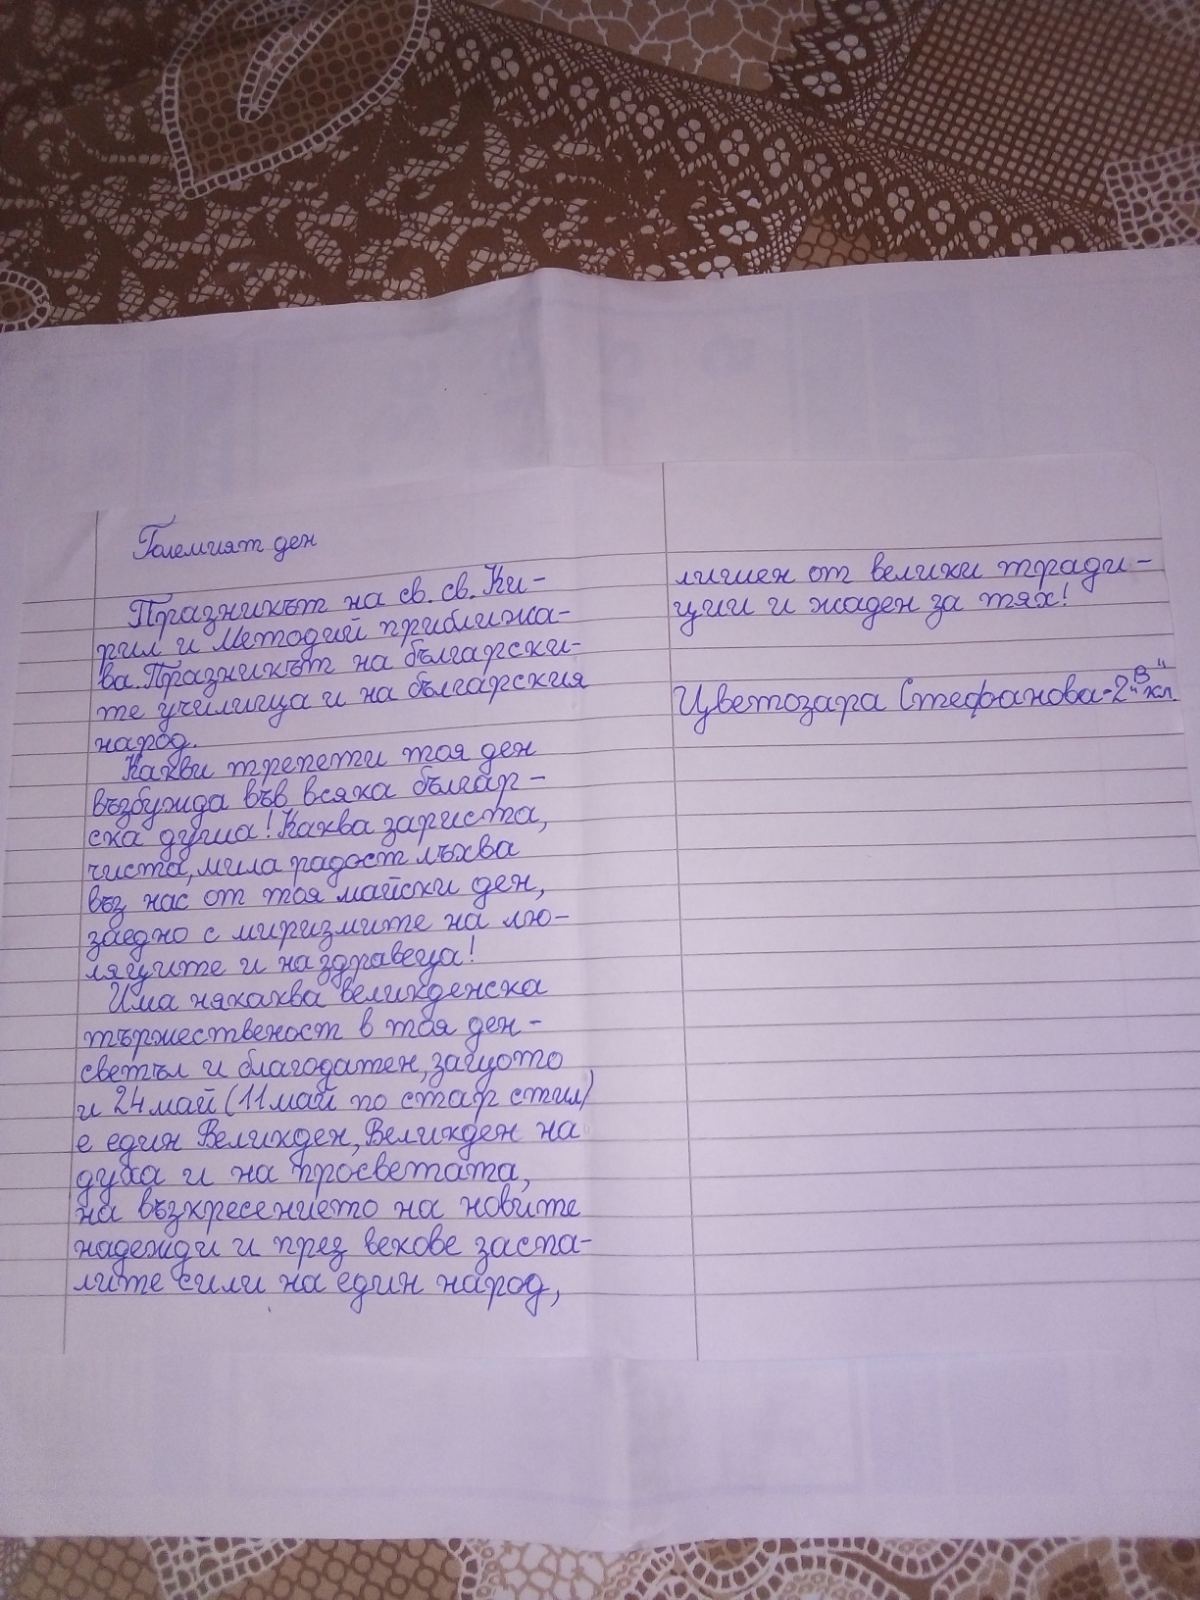 Големият ден
Празникът на св. св. Ки-
рил и Методий приближа-
ва. Празникът на български-
те училища и на българския
народ.
Какви трепети тоя ден
възбужда във всяка българ-
ска душа! Каква зариста,
чиста, мила радост лъхва
въз нас от тоя майски ден,
заедно с миризмите на лю-
ляците и на здравеца!
Има някаква великденска
тържественост в тоя ден -
светъл и благодатен, защото
и 24 май (11 май по стар стил)
е един Великден, Великден на
духа и на просветата,
на възкресението на новите
надежди и през векове заспа-
лите сили на един народ,
лишен от велики тради-
ции и жаден за тях!
Цветозара Стефанова - 2 "В" кл.